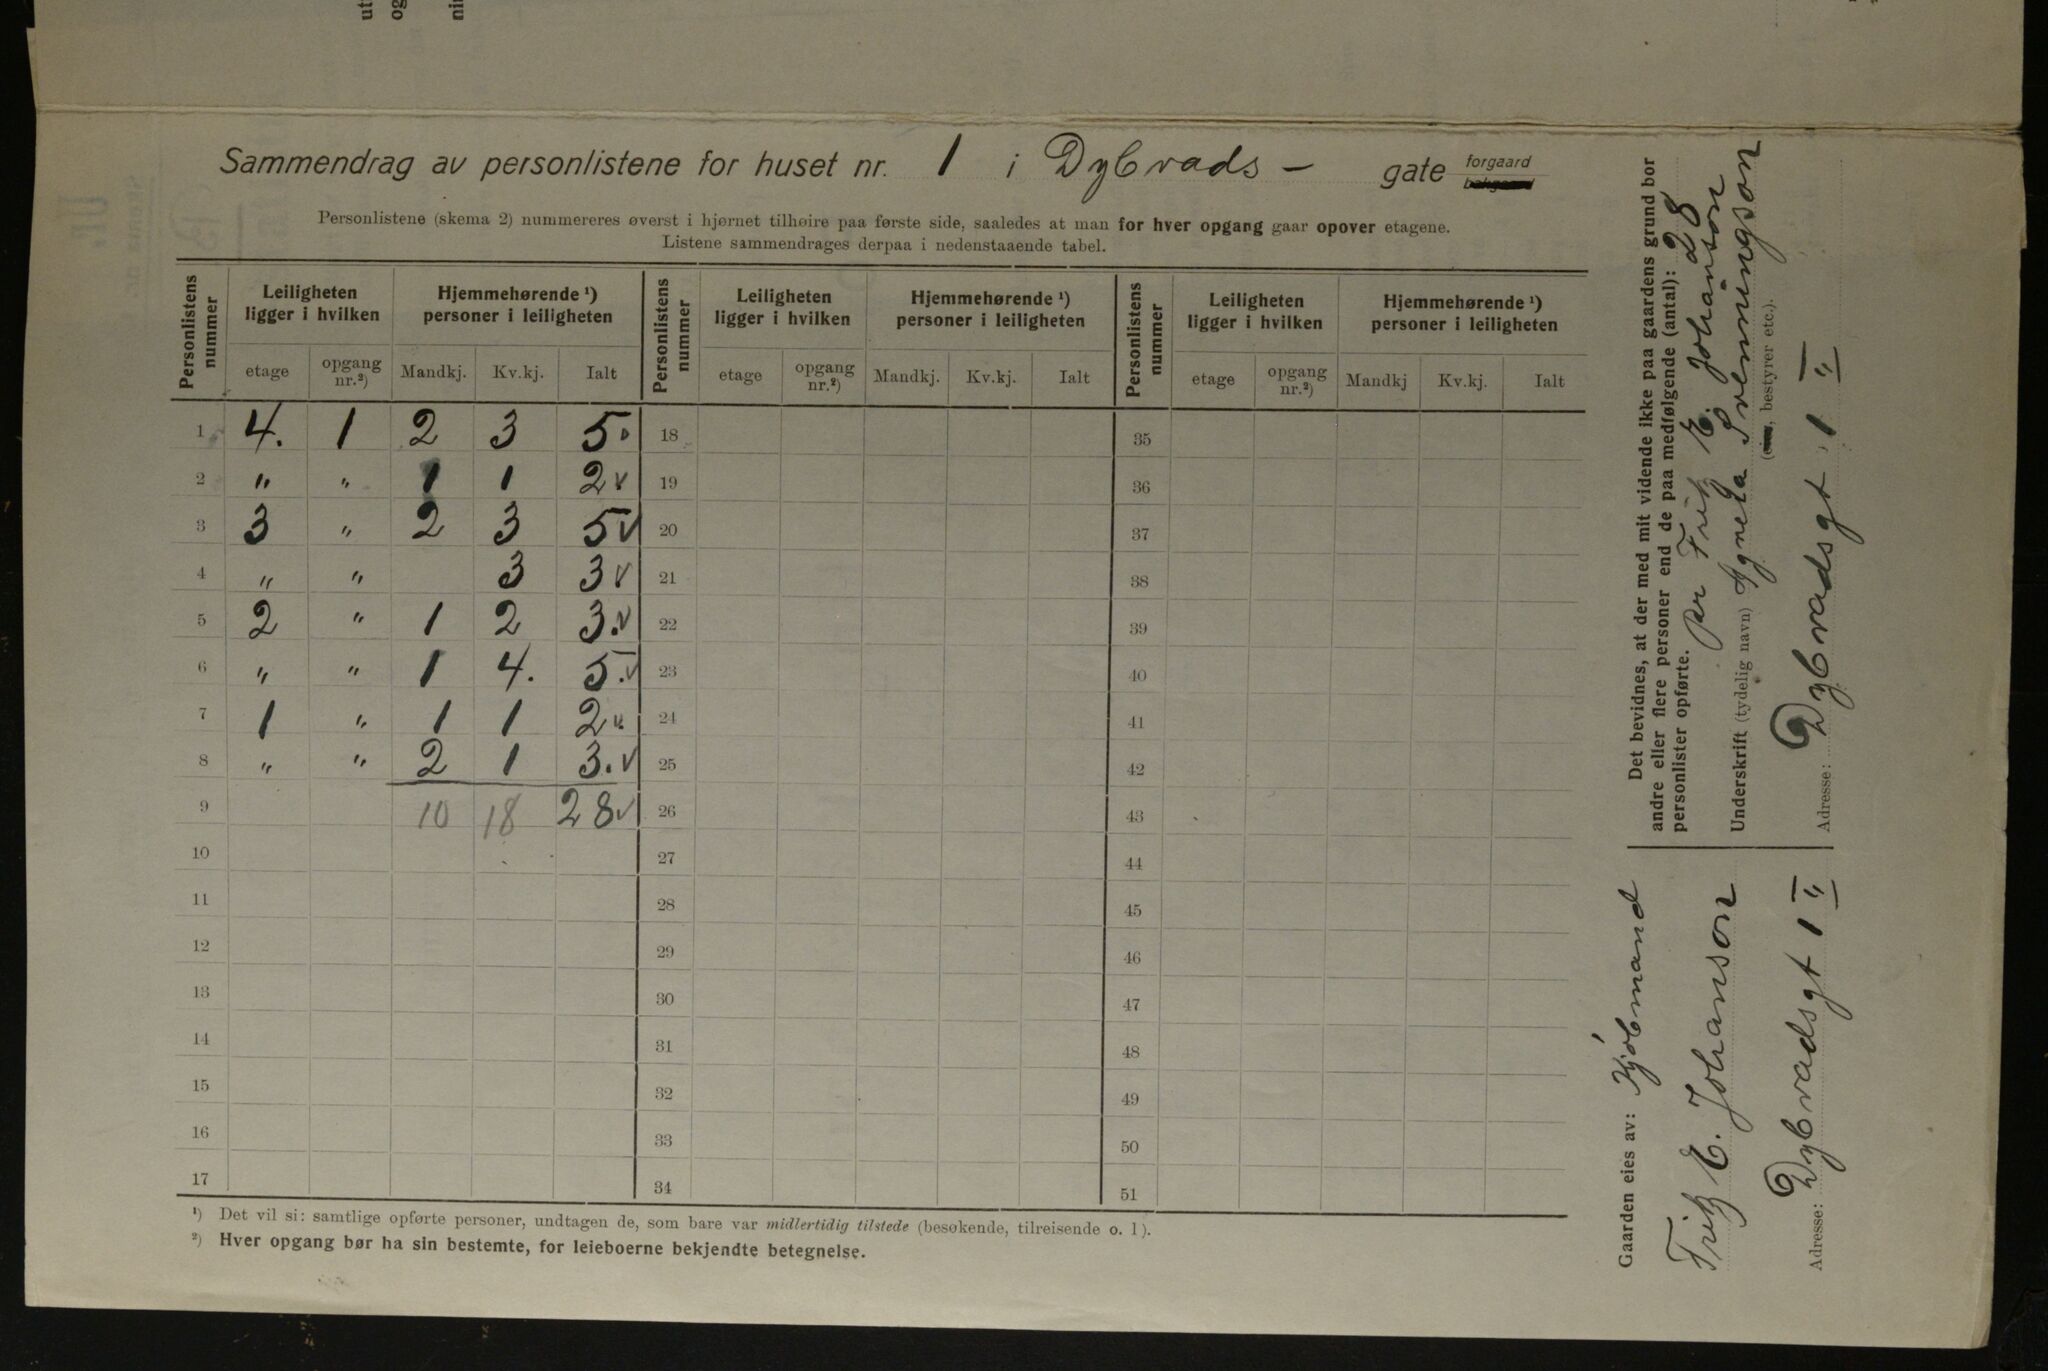 Sammendrag av personlistene for huset nr. 1 i Dybvads- gate forgaard bakgaard
Personlistene (skema 2) nummereres øverst i hjørnet tilhøire paa første side, saaledes at man for hver opgang gaar opover etagene.
Listene sammendrages derpaa i nedenstaaende tabel.
Personlistens nummer | Leiligheten ligger i hvilken | Hjemmehørende ¹) personer i leiligheten | Personlistens nummer | Leiligheten ligger i hvilken | Hjemmehørende ¹) personer i leiligheten | Personlistens nummer | Leiligheten ligger i hvilken | Hjemmehørende ¹) personer i leiligheten
etage | opgang nr.²) | Mandkj. | Kv.kj. | Ialt | etage | opgang nr.²) | Mandkj. | Kv.kj. | Ialt | etage | opgang nr.²) | Mandkj | Kv.kj. | Ialt
1 4. 1 2 3 5. 18 35
2 " " 1 1 2 v 19 36
3 3 " 2 3 5 v 20 37
4 " " 3 3 v 21 38
5 2 " 1 2 3. v 22 39
6 " " 1 4. 5. v 23 40
7 1 " 1 1 2 v 24 41
8 " " 2 1 3. v 25 42
9 10 18 28 v 26 43
10 27 44
11 28 45
12 29 46
13 30 47
14 31 48
15 32 49
16 33 50
17 34 51
¹) Det vil si: samtlige opførte personer, undtagen de, som bare var midlertidig tilstede (besøkende, tilreisende o. l).
²) Hver opgang bør ha sin bestemte, for leieboerne bekjendte betegnelse.
Det bevidnes, at der med mit vidende ikke paa gaardens grund bor
andre eller flere personer end de paa medfølgende (antal): 28
personlister opførte. per Fritz E. Johanson
Underskrift (tydelig navn) Agneta Svenningson
(eier, bestyrer etc.).
Adresse: Dybvadsgt. 1 II"
Gaarden eies av: Kjøbmand
Fritz E. Johanson
Adresse: Dybvadsgt 1 II"